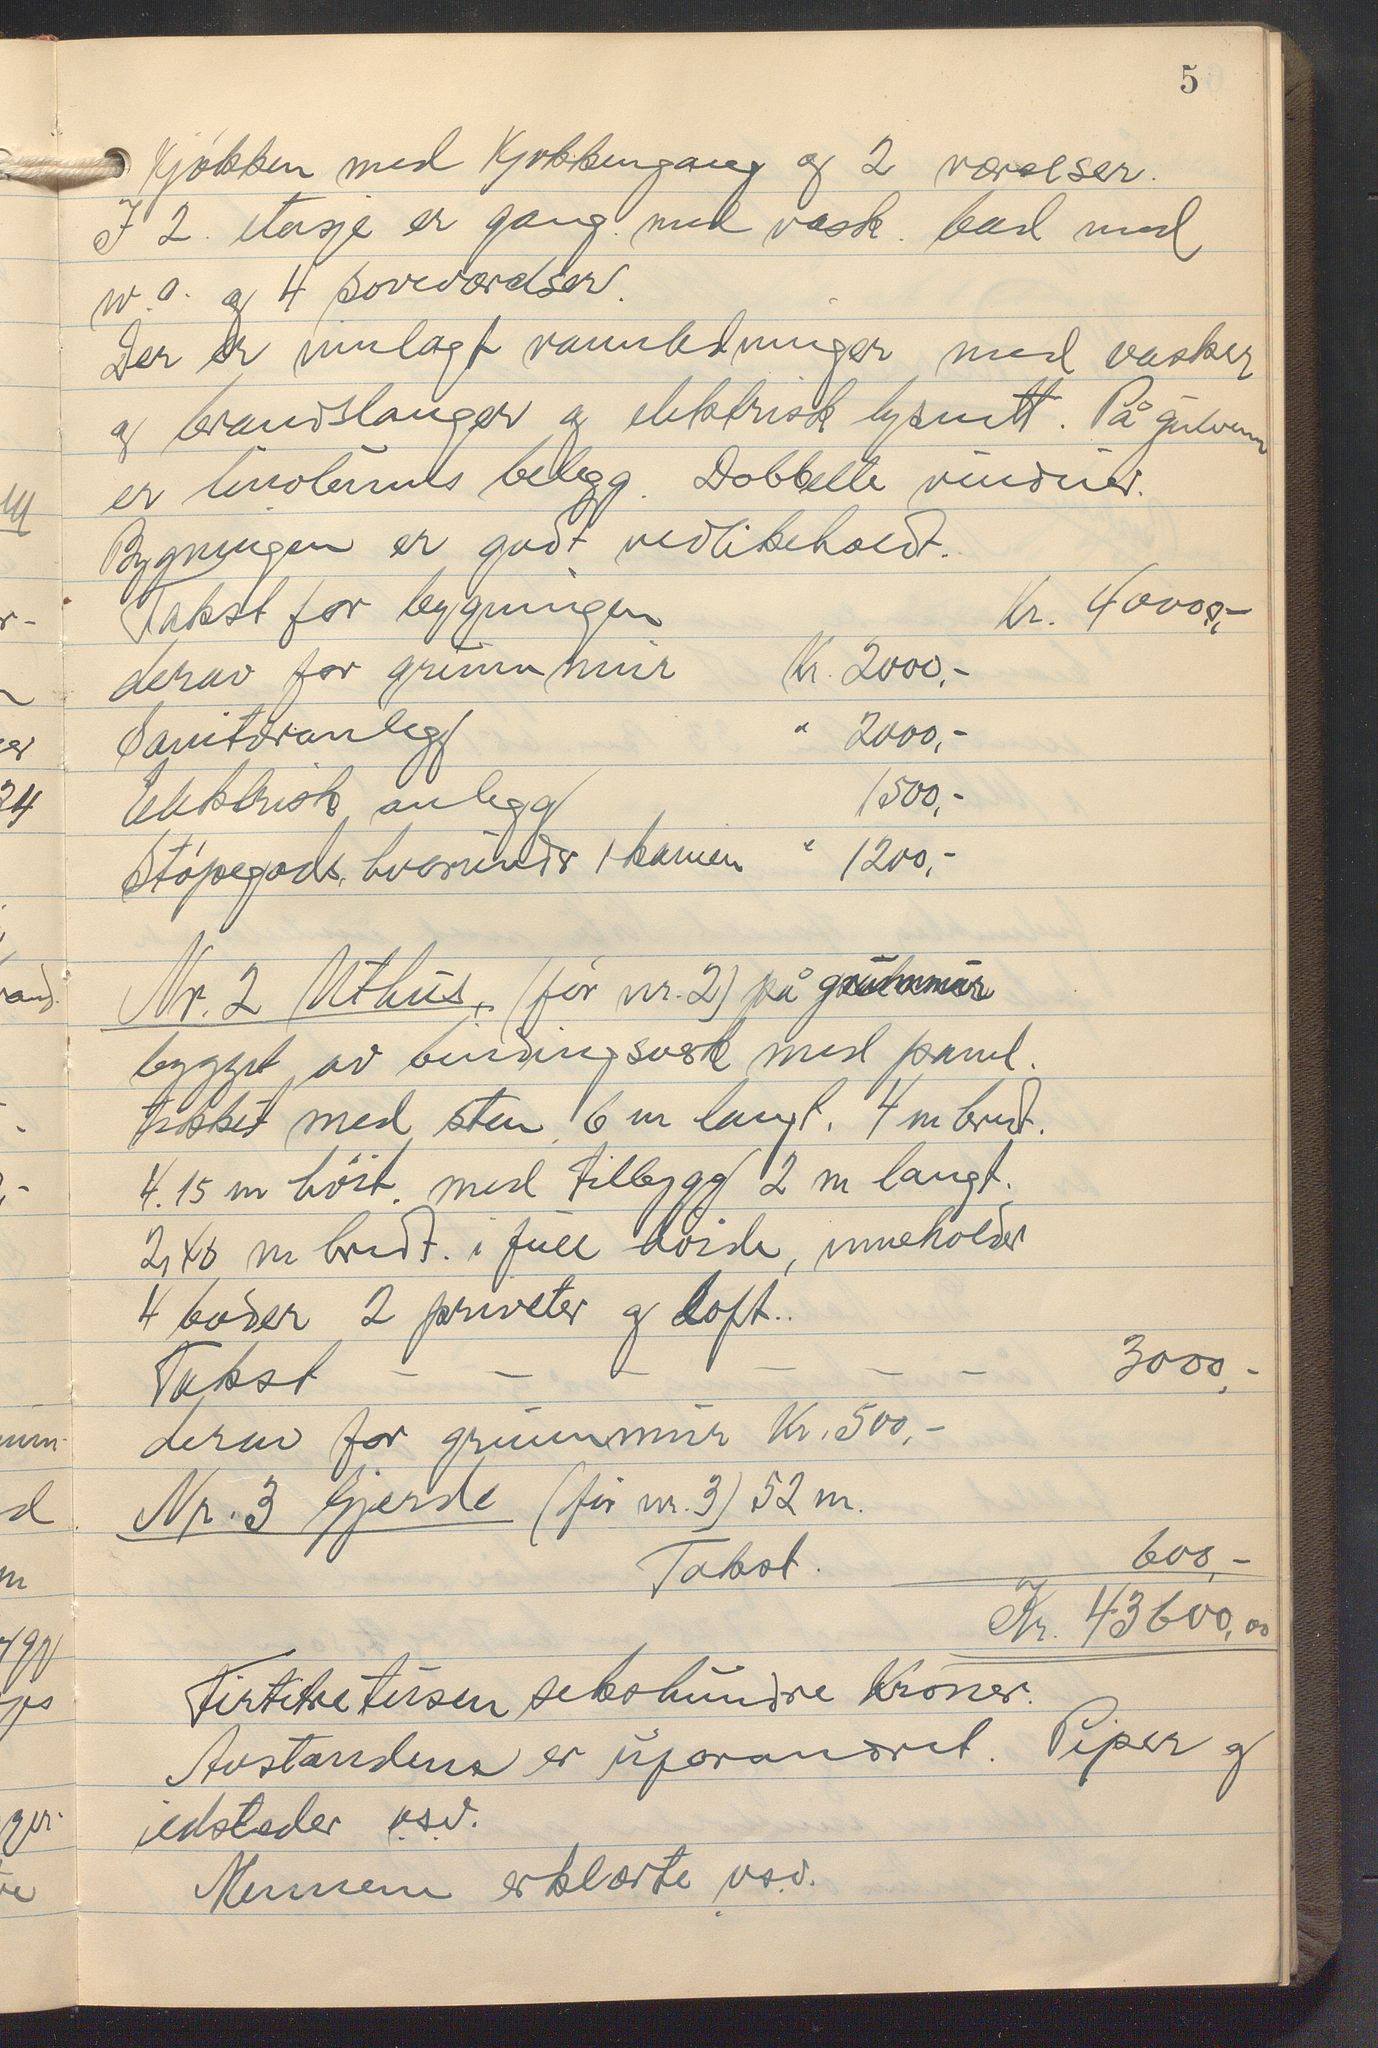 5
Kjøkken med Kjøkkengang og 2 værelser.
I 2. etasje er gang med vask. bad med
w.c. og 4 soveværelser.
Der er innlagt vannledninger med vasker
og brandslanger og elektrisk lysnett. På gulvene
er linoleums belegg. Dobbelte vinduer.
Bygningen er godt vedlikeholdt.
Takst for bygningen Kr. 40000,-
derav for grunnmur Kr. 2000,-
Sanitæranlegg " 2000,-
Elektrisk anlegg 1500,-
Støpegods, hvorunder 1 kamin " 1200,-
Nr. 2 Uthus, (før nr. 2) på grunnmur
bygget av bindingsverk med panel.
tekket med sten 6 m langt. 4 m bredt.
4.15 m höit. med tilbygg 2 m langt.
2,40 m bredt. i full höide, inneholder
4 boder 2 priveter og Loft..
Takst - - - - - - 3000,-
derav for grunnmur Kr. 500,-
Nr. 3 Gjerde (för nr. 3) 52 m.
Takst. 600,-
Kr. 43600,00
Firtitretusen sekshundre Kroner.
Avstandene er uforandret. Piper og
ildsteder osv.
Mennene erklærte osv.